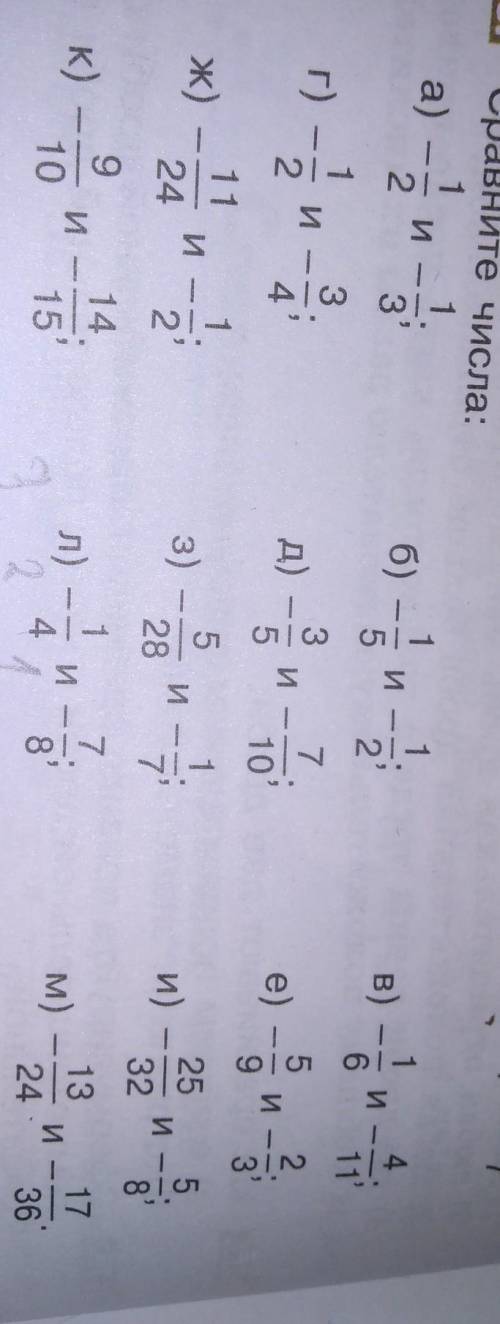 Сравните числа:
а) -1/2 и -1/3; б) -1/5 и -1/2; в) -1/6 и -4/11;
г) -1/2 и -3/4; д) -3/5 и -7/10; е) -5/9 и -2/3;
ж) -11/24 и -1/2; з) -5/28 и -1/7; и) -25/32 и -5/8;
к) -9/10 и -14/15; л) -1/4 и -7/8; м) -13/24 и -17/36.
2 1